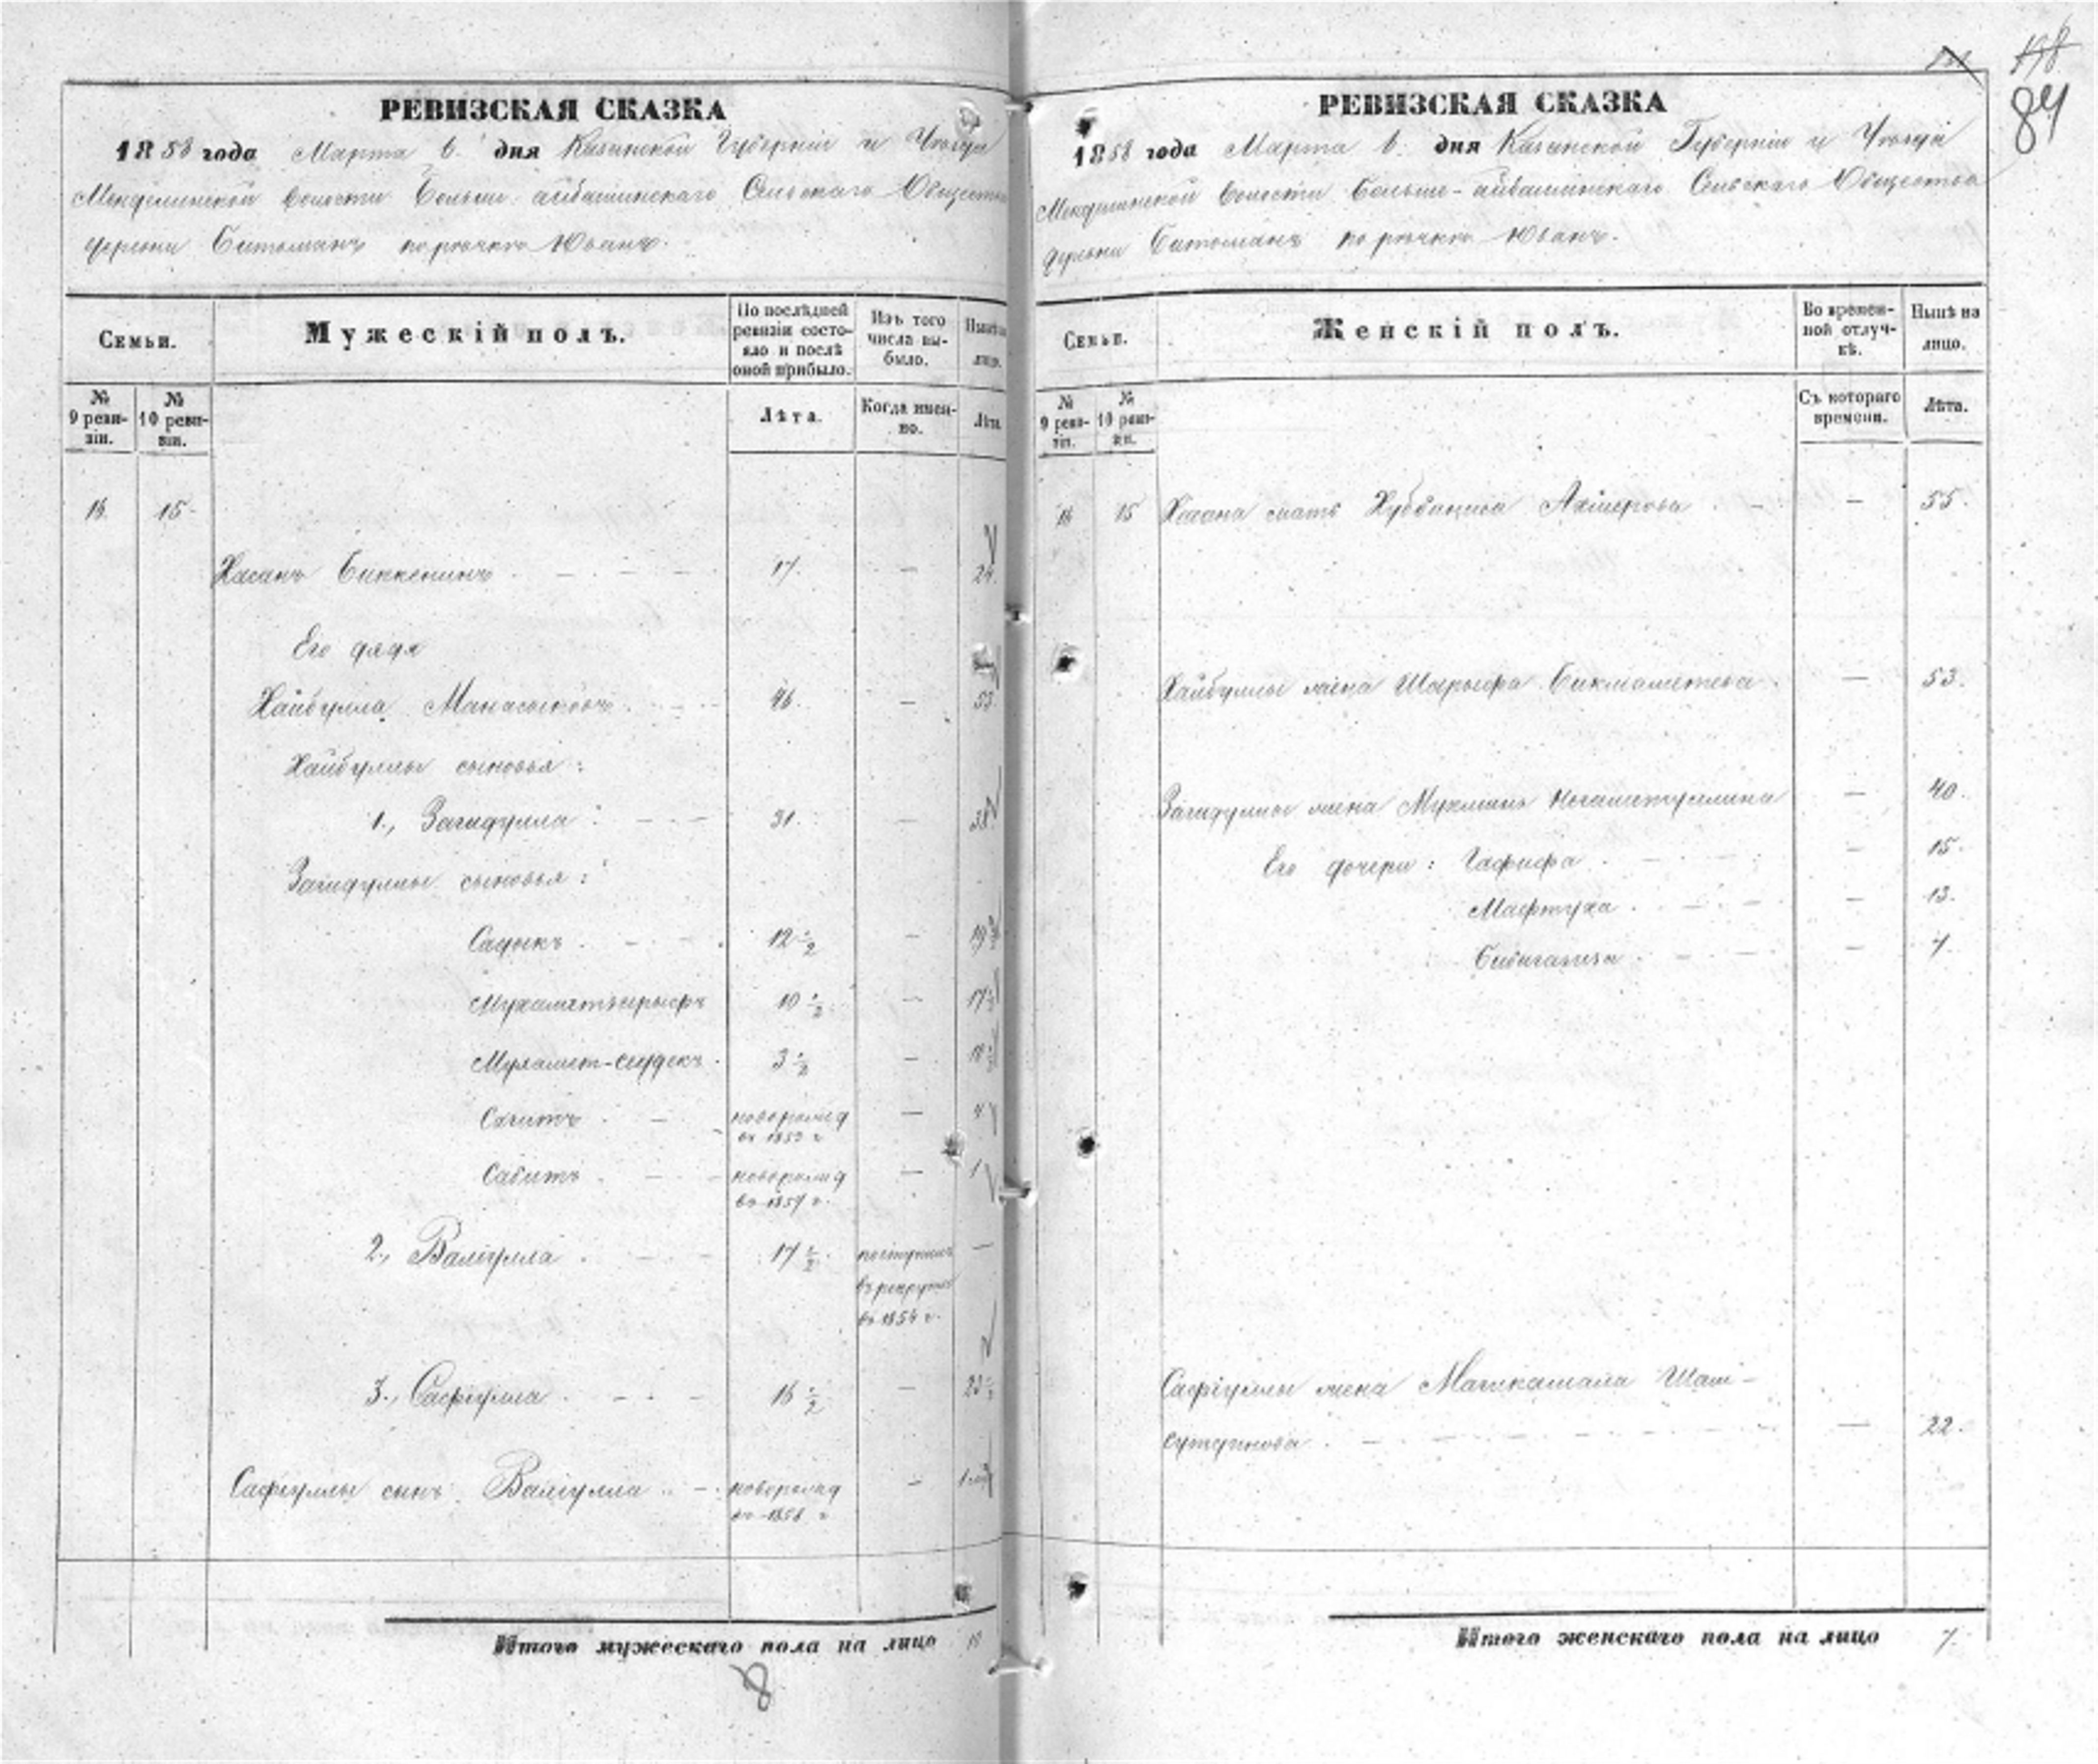 198
84
РЕВИЗСКАЯ СКАЗКА
1858 года Марта 6. дня Казанской Губерніи и Уѣзда
Мендѣлинской волости Больше айбашинскаго Сельскаго Общества
деревни Битоманъ по рѣчкѣ Юванъ.
Семьи.
Мужескій полъ.
По послѣдней ревизіи состояло и послѣ оной прибыло.
Изъ того числа выбыло.
Нынѣ на лицо.
№ 9 ревизіи.
№ 10 ревизіи.
Лѣта.
Когда именно.
Лѣта.
16. 15.
Хасанъ Биккенинъ 17. — 24.
Его дядя
Хайбулла Манасыповъ 46. — 53.
Хайбуллы сыновья:
1., Загидулла 31. — 38.
Загидуллы сыновья:
Садыкъ 12 1/2 — 19 1/2
Мухаметьшрыфъ 10 1/2 — 17 1/2
Мухамет-сыдекъ 3 1/2 — 10 1/2
Сагитъ новорожд — 4
въ 1853 г
Сабитъ новорожд — 1
въ 1857 г.
2., Валіулла 17 1/2 поступилъ —
въ рекруты
въ 1854 г.
3., Сафіулла 16 1/2 — 23 1/2
Сафіуллы сынъ Валіулла новорожд —
въ 1858 г
Итого мужескаго пола на лицо 10
8
РЕВИЗСКАЯ СКАЗКА
1858 года Марта 6. дня Казанской Губерніи и Уѣзда
Мендѣлинской волости Больше-айбашинскаго Сельскаго Общества
деревни Битоманъ по рѣчкѣ Юванъ.
Семьи.
Женскій полъ.
Во временной отлучкѣ.
Нынѣ на лицо.
№ 9 ревизіи.
№ 10 ревизіи.
Съ котораго времени.
Лѣта.
16 15 Хасана мать Хуббиниса Ахмерова — 55.
Хайбуллы жена Шарыфа Бикмаметева — 53.
Загидуллы жена Негаметуллина — 40.
Его дочери: Гафифа — 15.
Мафтуха — 13.
Бибигайша — 7.
Сафіуллы жена Шам-
сутдинова — 22.
Итого женскаго пола на лицо 7.